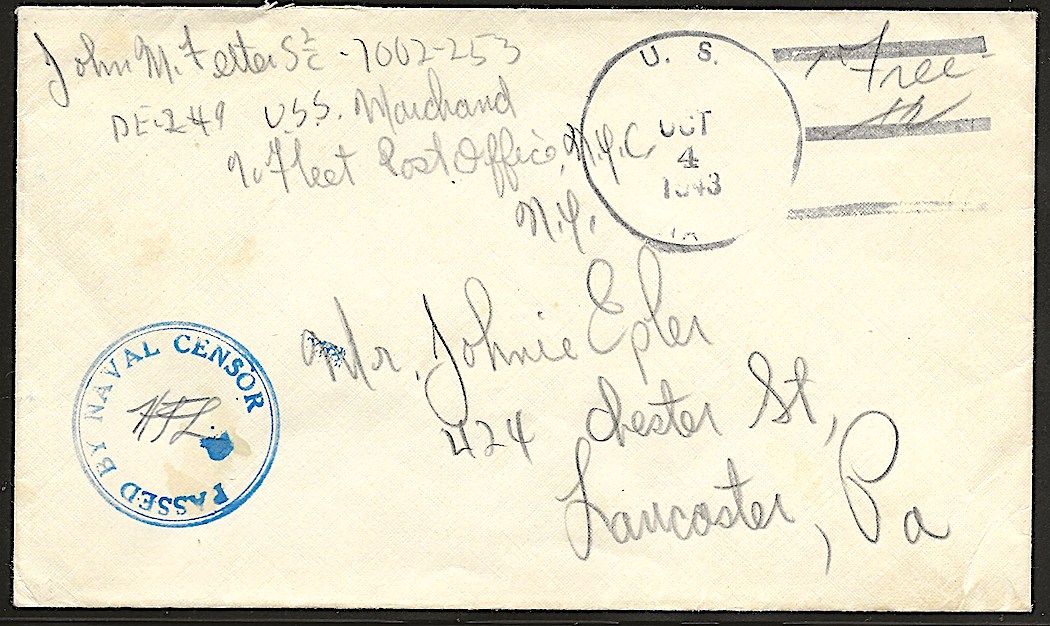 John M. Fetter S 2/c - 7002-253
DE-249 U.S.S. Marchand
% Fleet Post Office, N.Y.C.
N.Y.
U. S.
OCT
4
1943
Free
Mr. Johnie Epler
424 Chester St,
Lancaster, Pa
PASSED BY NAVAL CENSOR